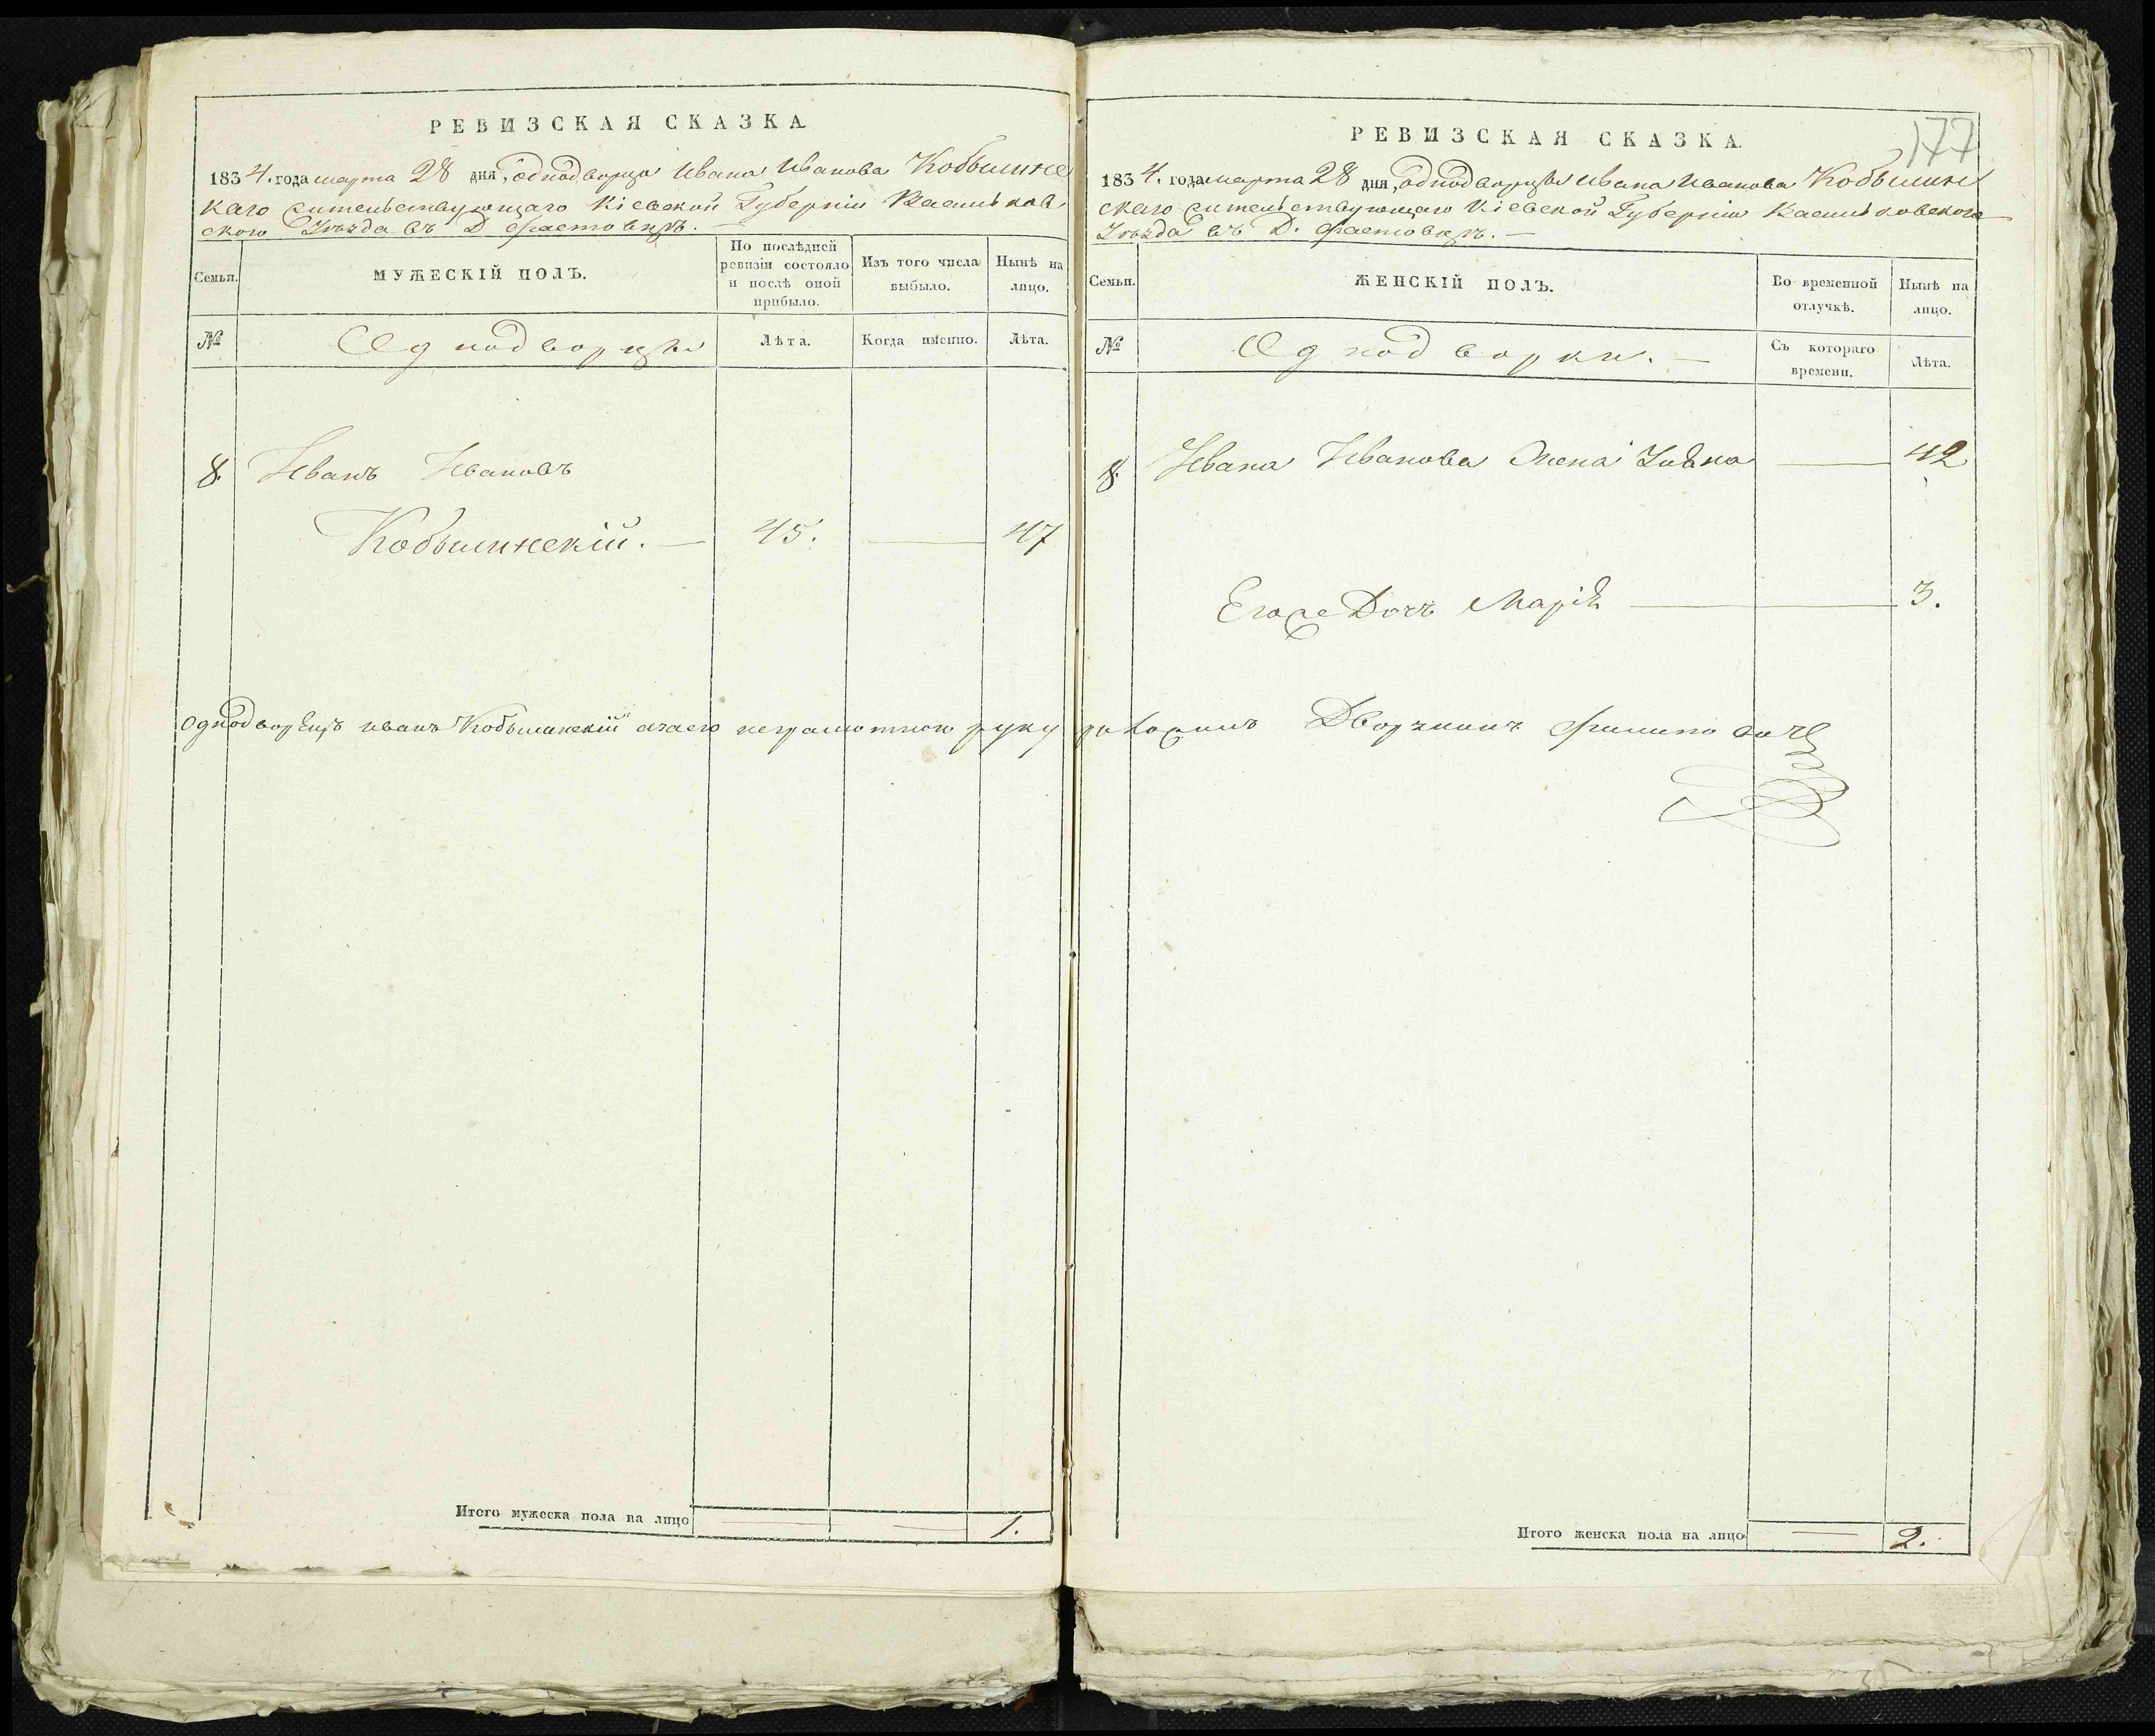 РЕВИЗСКАЯ СКАЗКА
1834. года марта 28 дня, однодворца Ивана Иванова Кобылинс
каго жительствующаго Кіевской Губерніи Васильков
ского Уѣзда въ Д Фастовцѣ. —
Семьи.
МУЖЕСКІЙ ПОЛЪ.
По послѣдней
ревизіи состояло
и послѣ оной
прибыло.
Изъ того числа
выбыло.
Нынѣ на
лицо.
№
Однодворцы
Лѣта.
Когда имянно.
Лѣта.
8. Иванъ Ивановъ
Кобылинскій. — 45. — 47
Однодворецъ иванъ Кобылинскій азаего неграмотного руку
Итого мужеска пола на лицо — — 1.
177
РЕВИЗСКАЯ СКАЗКА.
1834. года марта 28 дня, однодворца Ивана Иванова Кобылин
скаго жительствующаго Кіевской Губерніи Васильковского
Уѣзда въ Д. Фастовцѣ. —
Семьи.
ЖЕНСКІЙ ПОЛЪ.
Во временной
отлучкѣ.
Нынѣ на
лицо.
№
Однодворки. —
Съ котораго
времени.
Лѣта.
8. Ивана Иванова Жена — 42
Егоже Дочъ Марія — 3.
Дворянинъ
Итого женска пола на лицо — 2.